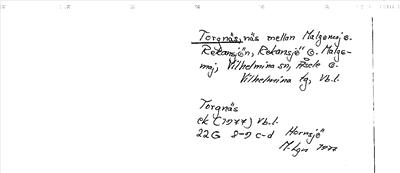 Torgnäs, näs mellan Malgomaj o.
Rekansjön, Rekansjö o. Malgo-
maj, Vilhelmina sn, Åsele o.
Vilhelmina tg, Vb.l.
Torgnäs
ek (1977) Vb.l.
22G 8-9 c-d Hornsjö
M-lgn 1977